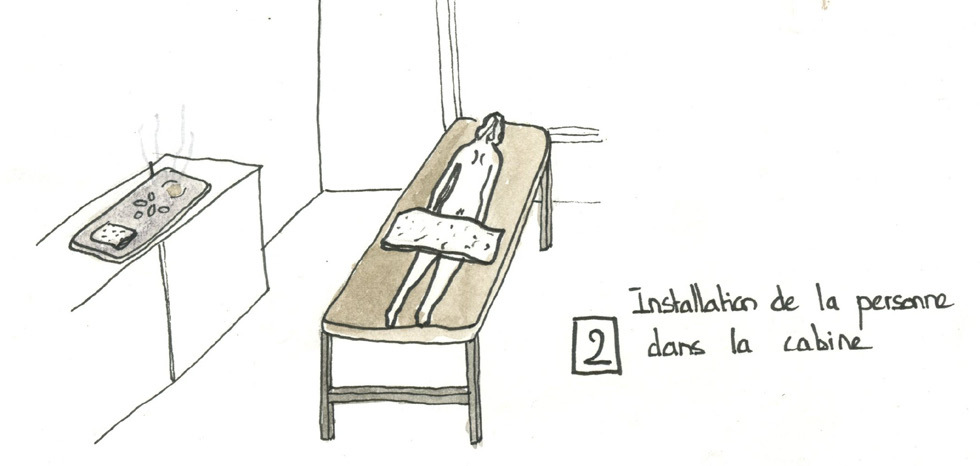 2
Installation de la personne
dans la cabine